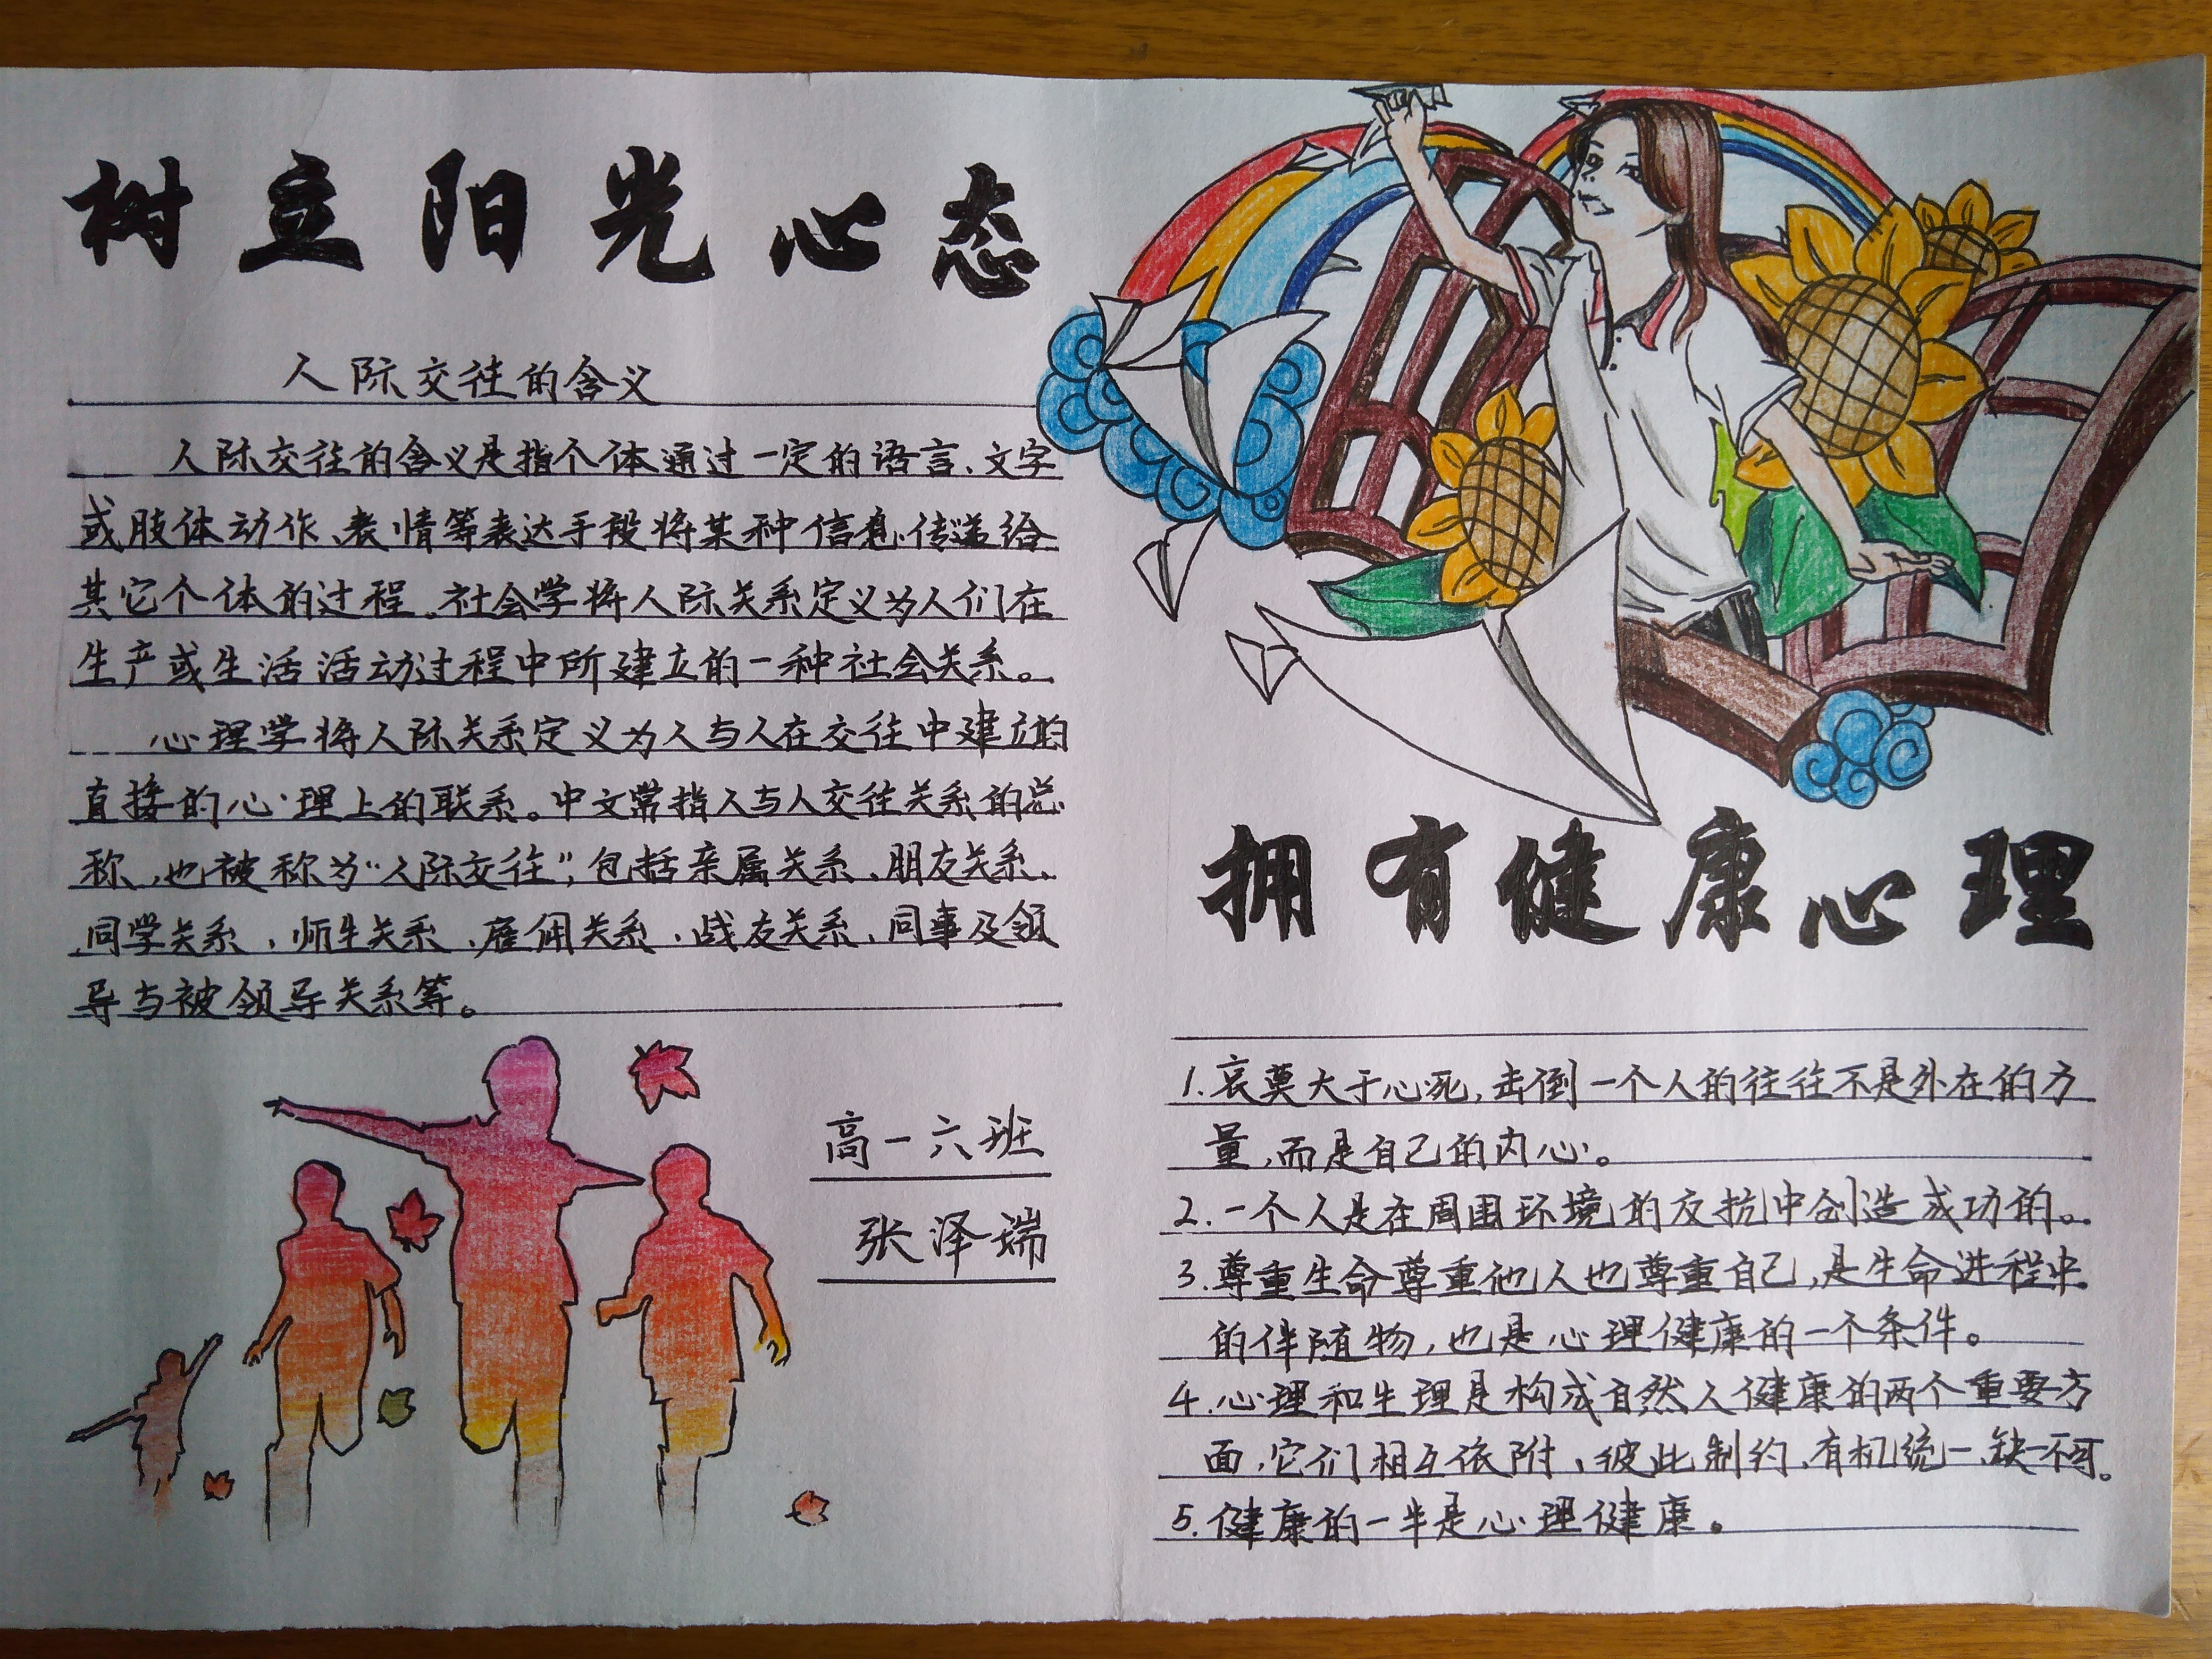 树立阳光心态
人际交往的含义
人际交往的含义是指个体通过一定的语言、文字
或肢体动作、表情等表达手段将某种信息传递给
其它个体的过程。社会学将人际关系定义为人们在
生产或生活活动过程中所建立的一种社会关系。
心理学将人际关系定义为人与人在交往中建立的
直接的心理上的联系。中文常指人与人交往关系的总
称，也被称为“人际交往”，包括亲属关系、朋友关系、
同学关系、师生关系、雇佣关系、战友关系、同事及领
导与被领导关系等。
高一六班
张泽端
拥有健康心理
1.哀莫大于心死，击倒一个人的往往不是外在的力
量，而是自己的内心。
2.一个人是在周围环境的反抗中创造成功的。
3.尊重生命尊重他人也尊重自己，是生命进程中
的伴随物，也是心理健康的一个条件。
4.心理和生理是构成自然人健康的两个重要方
面，它们相互依附、彼此制约、有机统一、缺一不可。
5.健康的一半是心理健康。